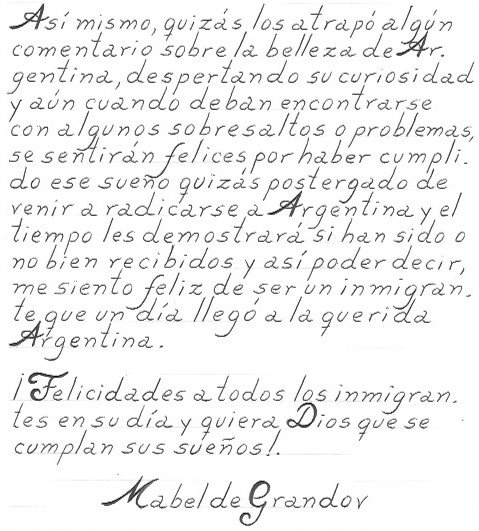 Así mismo, quizás los atrapó algún
comentario sobre la belleza de Ar.
gentina, despertando su curiosidad
y aún cuando deban encontrarse
con algunos sobresaltos o problemas,
se sentirán felices por haber cumpli.
do ese sueño quizás postergado de
venir a radicarse a Argentina y el
tiempo les demostrará si han sido o
no bien recibidos y así poder decir,
me siento feliz de ser un inmigran.
te que un día llegó a la querida
Argentina.
¡Felicidades a todos los inmigran.
tes en su día y quiera Dios que se
cumplan sus sueños!.
Mabel de Grandov